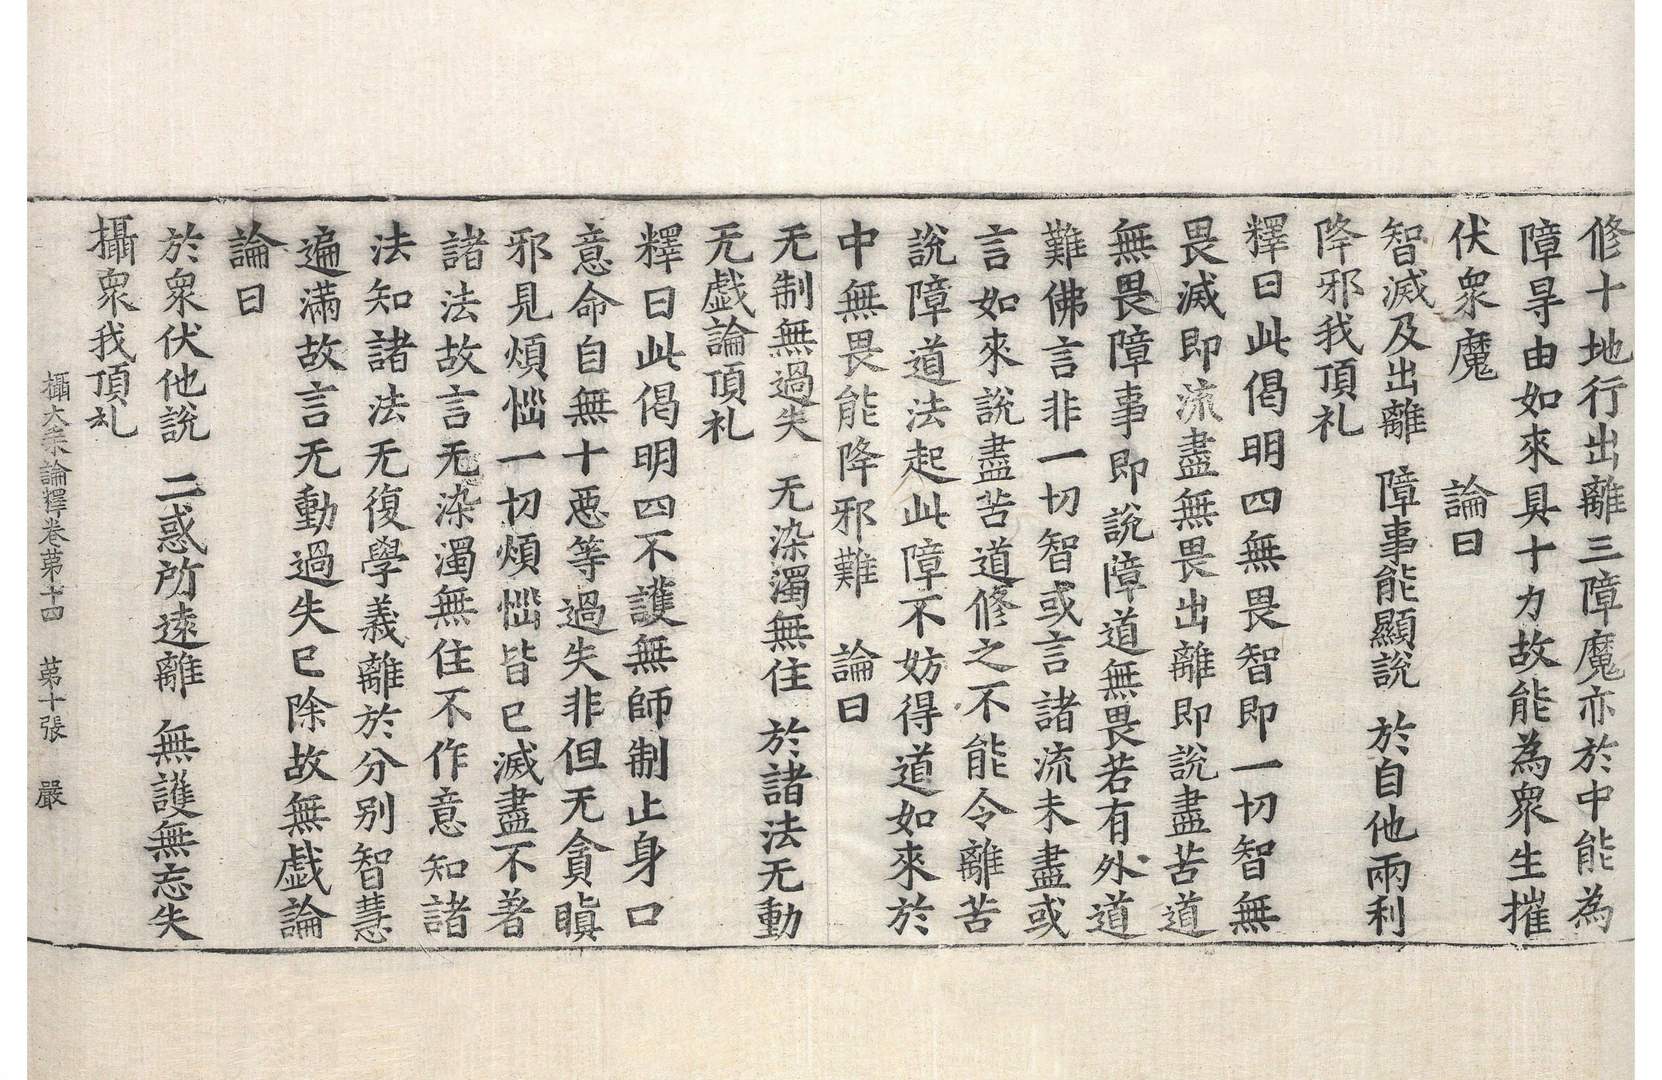 修十地行出離三障魔亦於中能為
障㝵由如來具十力故能為衆生摧
伏衆魔　論曰
智滅及出離　障事能顯說　於自他兩利
降邪我頂礼
釋曰此偈明四無畏智即一切智無
畏滅即流盡無畏出離即說盡苦道
無畏障事即說障道無畏若有外道
難佛言非一切智或言諸流未盡或
言如來說盡苦道修之不能令離苦
說障道法起此障不妨得道如來於
中無畏能降邪難　論曰
无制無過失　无染濁無住　於諸法无動
无戯論頂礼
釋曰此偈明四不護無師制止身口
意命自無十惡等過失非但无貪瞋
邪見煩惱一切煩惱皆已滅盡不著
諸法故言无染濁無住不作意知諸
法知諸法无復學義離於分別智慧
遍滿故言无動過失已除故無戯論
論曰
於衆伏他說　二惑所遠離　無護無忘失
攝衆我頂礼
攝大乗論釋卷苐十四　苐十張　嚴